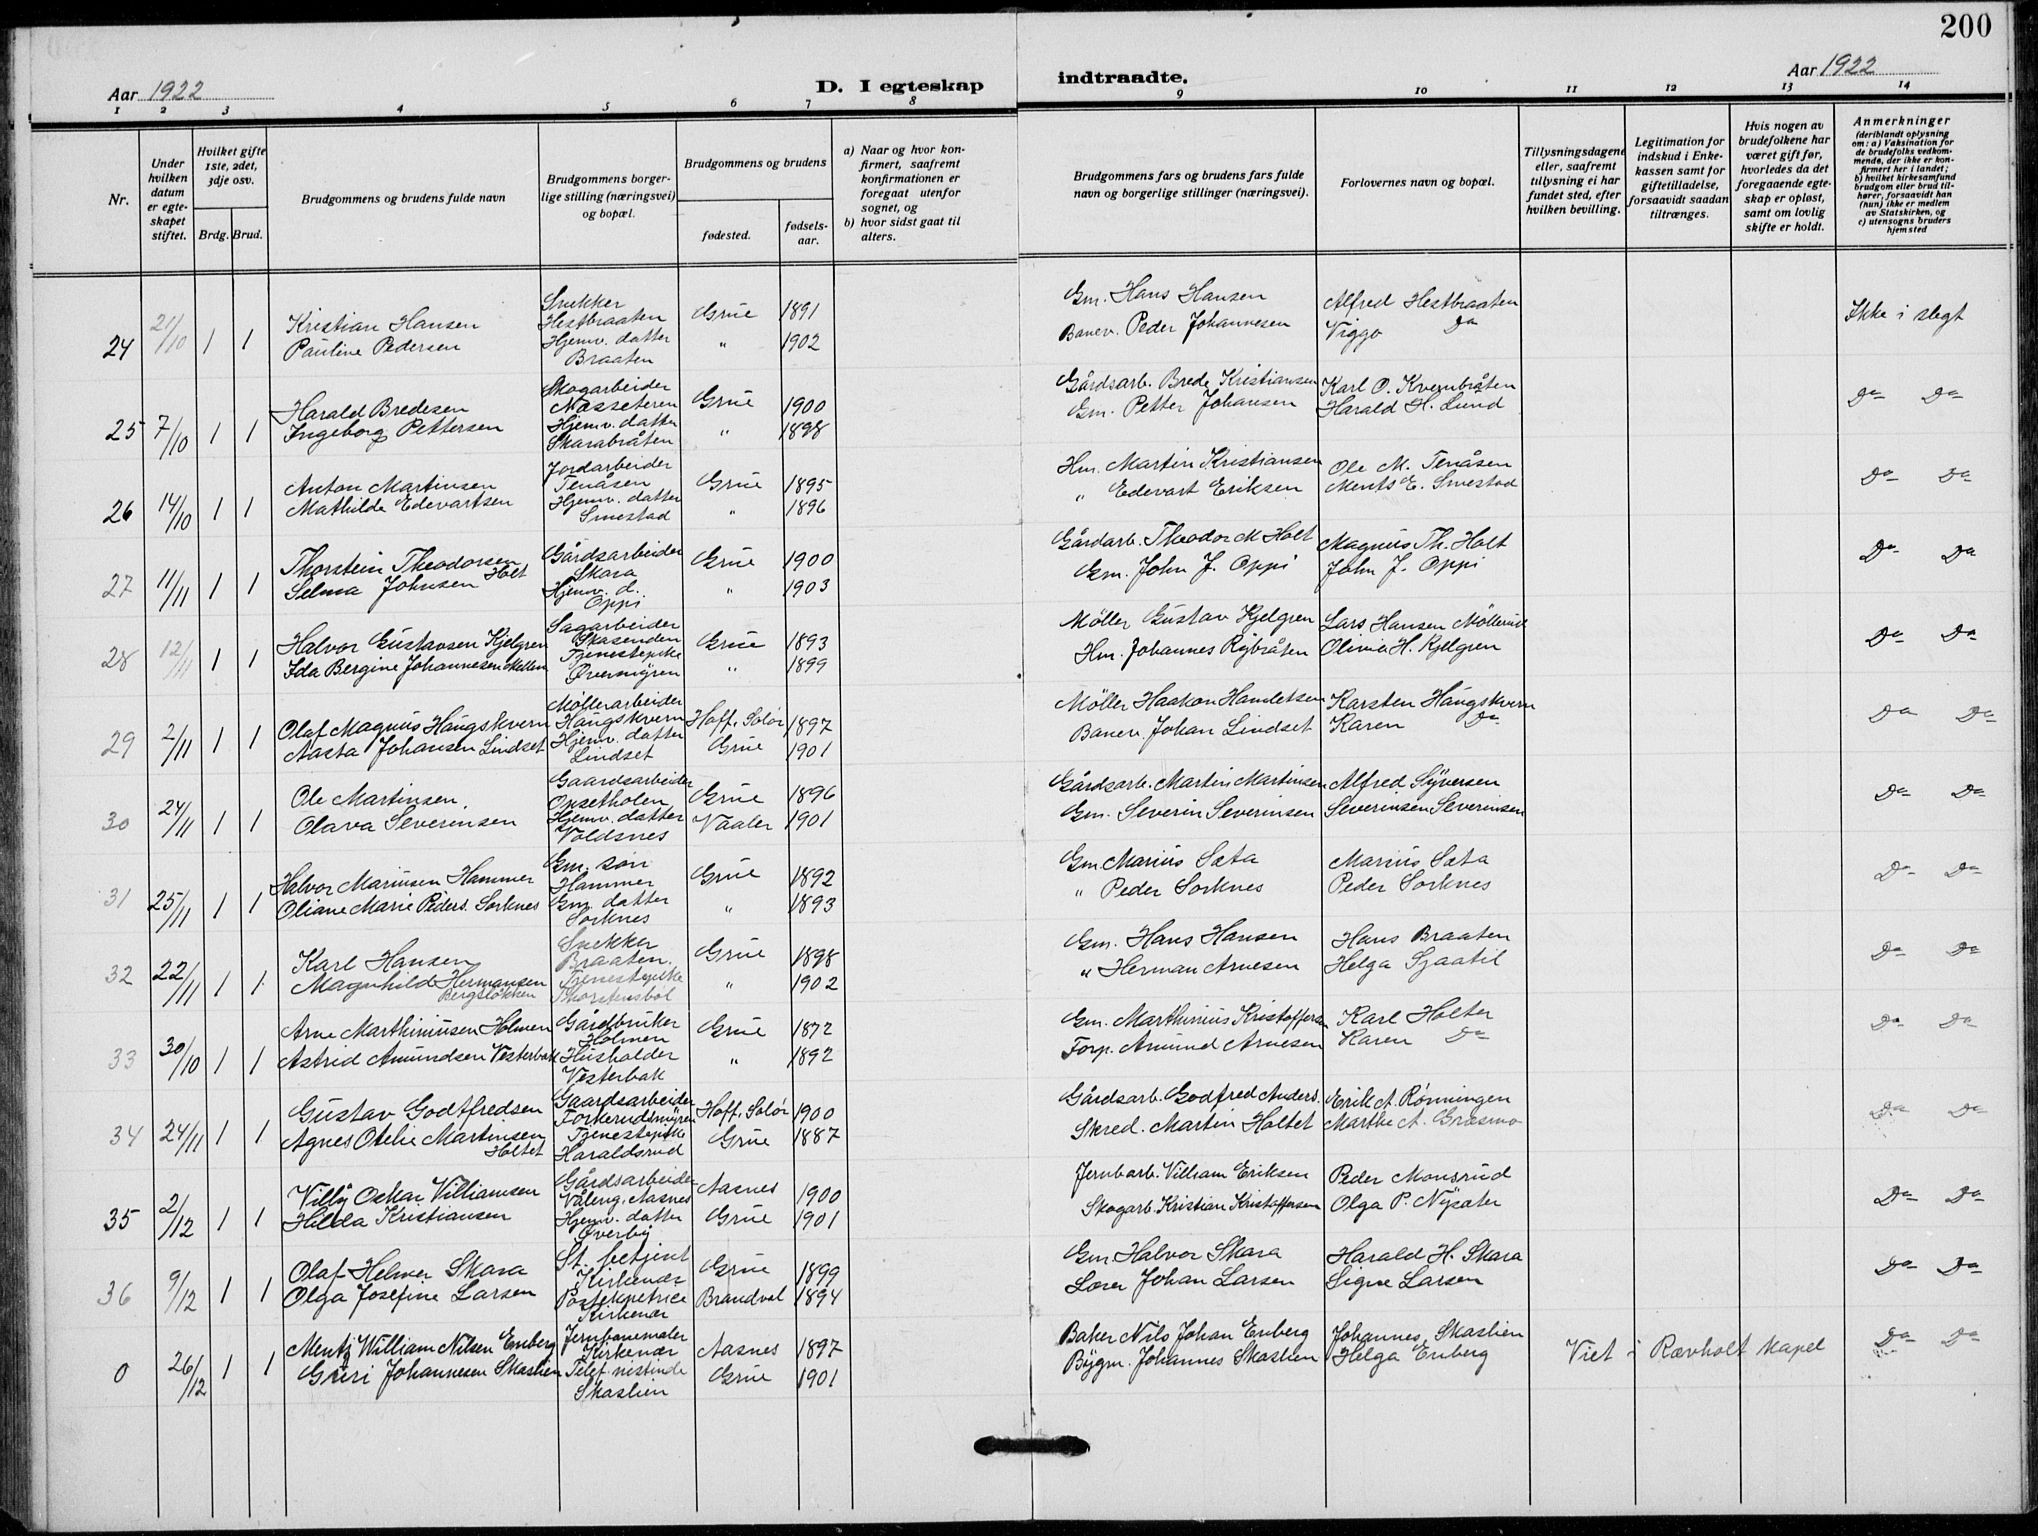 200
Aar 1922
D. I egteskap
indtraadte.
Aar 1922
1 2 3 4 5 6 7 8 9 10 11 12 13 14
Nr.
Under hvilken datum er egte-skapet stiftet.
Hvilket gifte 1ste, 2det, 3dje osv.
Brdg. Brud.
Brudgommens og brudens fulde navn
Brudgommens borger-lige stilling (næringsvei) og bopæl.
Brudgommens og brudens
fødested.
fødsels-aar.
a) Naar og hvor kon-firmert, saafremt konfirmationen er foregaat utenfor sognet, og
b) hvor sidst gaat til alters.
Brudgommens fars og brudens fars fulde navn og borgerlige stillinger (næringsvei).
Forlovernes navn og bopæl.
Tillysningsdagene eller, saafremt tillysning ei har fundet sted, efter hvilken bevilling.
Legitimation for indskud i Enke-kassen samt for giftetilladelse, forsaavidt saadan tiltrænges.
Hvis nogen av brudefolkene har været gift før, hvorledes da det foregaaende egte-skap er opløst, samt om lovlig skifte er holdt.
Anmerkninger
(deriblandt oplysning om: a) Vaksination for de brudefolks vedkom-mende, der ikke er kon-firmert her i landet; b) hvilket kirkesamfund brudgom eller brud til-hører, forsaavidt han (hun) ikke er medlem av Statskirken, og c) utensogns bruders hjemsted
24 21/10 1 1 Kristian Hansen Snekker Hestbraaten Grue 1891 Gm. Hans Hansen Alfred Hestbraaten Ikke i slegt
Pauline Pedersen Hjemv. datter Braaten " 1902 Banev. Peder Johannesen Viggo Do
25 7/10 1 1 Harald Bredesen Skogarbeider Næsseteren Grue 1900 Gårdsarb. Brede Kristiansen Karl O. Kvernbråten Do Do
Ingeborg Pettersen Hjemv. datter Skarabråten " 1898 Gm. Petter Johansen Harald H. Lund
26 14/10 1 1 Anton Martinsen Jordarbeider Tenåsen Grue 1895 Hm. Martin Kristiansen Ole M. Tenåsen Do Do
Mathilde Edevartsen Hjemv. datter Smestad " 1896 " Edevart Eriksen Ments E. Smestad
27 11/11 1 1 Thorstein Theodorsen Holt Gårdsarbeider Skara Grue 1900 Gårdarb. Theodor M Holt Magnus Th. Holt Do Do
Selma Johnsen Hjemv. d. Oppi " 1903 Gm. John J. Oppi John J. Oppi
28 12/11 1 1 Halvor Gustavsen Kjelgren Sagarbeider Skasenden Grue 1893 Møller Gustav Kjelgren Lars Hansen Møllerud Do Do
Ida Bergine Johannesen Tjenestepike Øvermyren " 1899 Hm. Johannes Rybråten Olivia H. Kjelgren
29 2/11 1 1 Olaf Magnus Haugskvern Møllerarbeider Haugskvern Hoff, Solør 1897 Møller Haakon Hamletsen Karsten Haugskvern Do Do
Aasta Johansen Lindset Hjemv. datter Lindset Grue 1901 Banev. Johan Lindset Karen Do
30 24/11 1 1 Ole Martinsen. Gaardsarbeider Opsetholen Grue 1896 Gårdsarb. Martin Martinsen Alfred Syversen Do Do
Olava Severinsen Hjemv. datter Voldsnes Vaaler 1901 Gm. Severin Severinsen Severinsen Severinsen
31 25/11 1 1 Halvor Mariusen Hammer Gm. søn Hammer Grue 1892 Gm Marius Sæta Marius Sæta Do Do
Oliane Marie Peders. Sorknes Gm. datter Sorknes " 1893 " Peder Sorknes Peder Sorknes
32 22/11 1 1 Karl Hansen Snekker Braaten. Grue 1898 Gm. Hans Hansen Hans Braaten Do Do
Magnhild Hermansen Bergsløkken Tjenestepike Thorstensbøl " 1902 " Herman Arnesen Helga Sjaatil
33 30/10 1 1 Arne Marthiniusen Holmen Gårdbruker Holmen Grue 1872 Gm. Marthinius Kristoffersen Karl Holter Do Do
Astrid Amundsen Vesterbak Husholder Vesterbak " 1892 Forp. Amund Arnesen Karen Do
34 24/11 1 1 Gustav Godtfredsen Gaardsarbeider Forkerudsmyren Hoff, Solør 1900 Gårdsarb. Godfred Anders. Erik A. Rønningen Do Do
Agnes Otelie Martinsen Holtet Tjenestepike Haraldsrud Grue 1887 Skred. Martin Holtet Marthe A. Græsmo
35 2/12 1 1 Villy Oskar Villiamsen Gårdsarbeider Våleng, Aasnes Aasnes 1900 Jernbarb. Villiam Eriksen Peder Monsrud Do Do
Hilda Kristiansen Hjemv. datter Øverby Grue 1901 Skogarb. Kristian Kristoffersen Olga P. Nysæter
36 9/12 1 1 Olaf Helmer Skara St. betjent Kirkenær Grue 1899 Gm. Halvor Skara Harald H. Skara Do Do
Olga Josefine Larsen Postekspetrice Kirkenær Brandval 1894 Lærer Johan Larsen Signe Larsen
0 26/12 1 1 Mentz William Nilsen Enberg Jernbanemaler Kirkenær Aasnes 1897 Baker Nils Johan Enberg Johannes Skaslien Viet i Rævholt kapel Do Do
Guri Johannesen Skaslien Telef. nistinde Skaslien Grue 1901 Bygm. Johannes Skaslien Helga Enberg